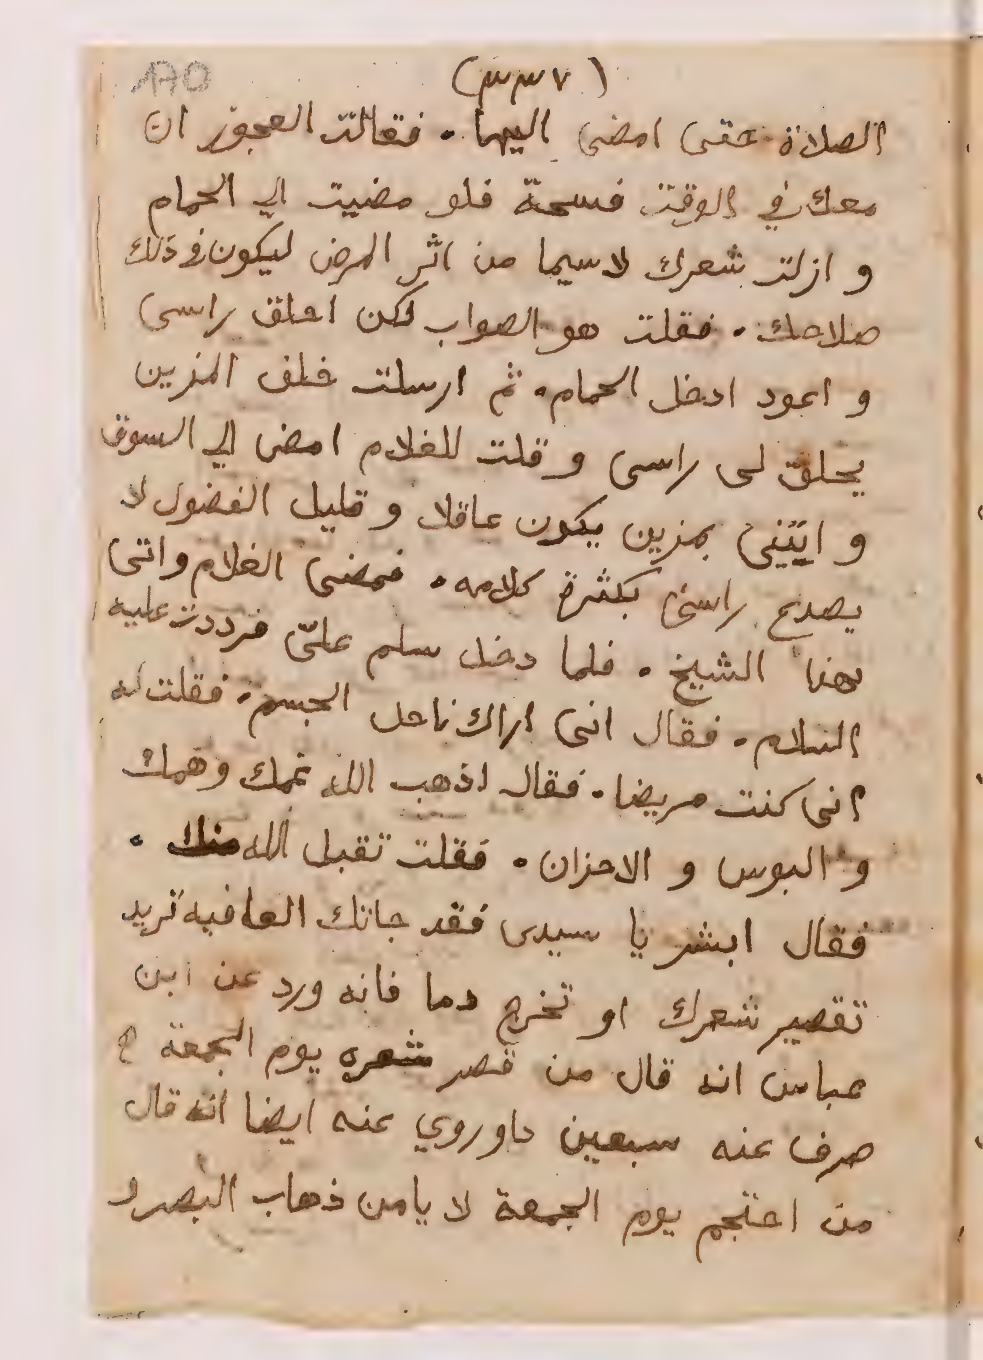 170
(٣٣٧)
الصلاة حتى امضى اليها. فقالت العجوز ان
معك في الوقت فسحة فلو مضيت الي الحمام
و ازلت شعرك لا سيما من اثر المرض ليكون في ذلك
صلاحك. فقلت هو الصواب لكن احلق راسى
و اعود ادخل الحمام. ثم ارسلت خلف المزين
يحلق لى راسى و قلت للغلام امضى الي السوق
و ايتنى بمزين يكون عاقلا و قليل الفضول لا
يصدع راسى بكثرة كلامه. فمضى الغلام و اتى
بهذا الشيخ. فلما دخل سلم علىّ فرددت عليه
السلام. فقال انى اراك ناحل الجسم. فقلت له
انى كنت مريضا. فقال اذهب الله غمك و همك
و البوس و الاحزان. فقلت تقبل الله منك.
فقال ابشر يا سيدى فقد جاتك العافيه تريد
تقصير شعرك او تخرج دما فانه ورد عن ابن
عباس انه قال من قصر شعره يوم الجمعة
صرف عنه سبعين داو روي عنه ايضا انه قال
من احتجم يوم الجمعة لا يامن ذهاب البصر و